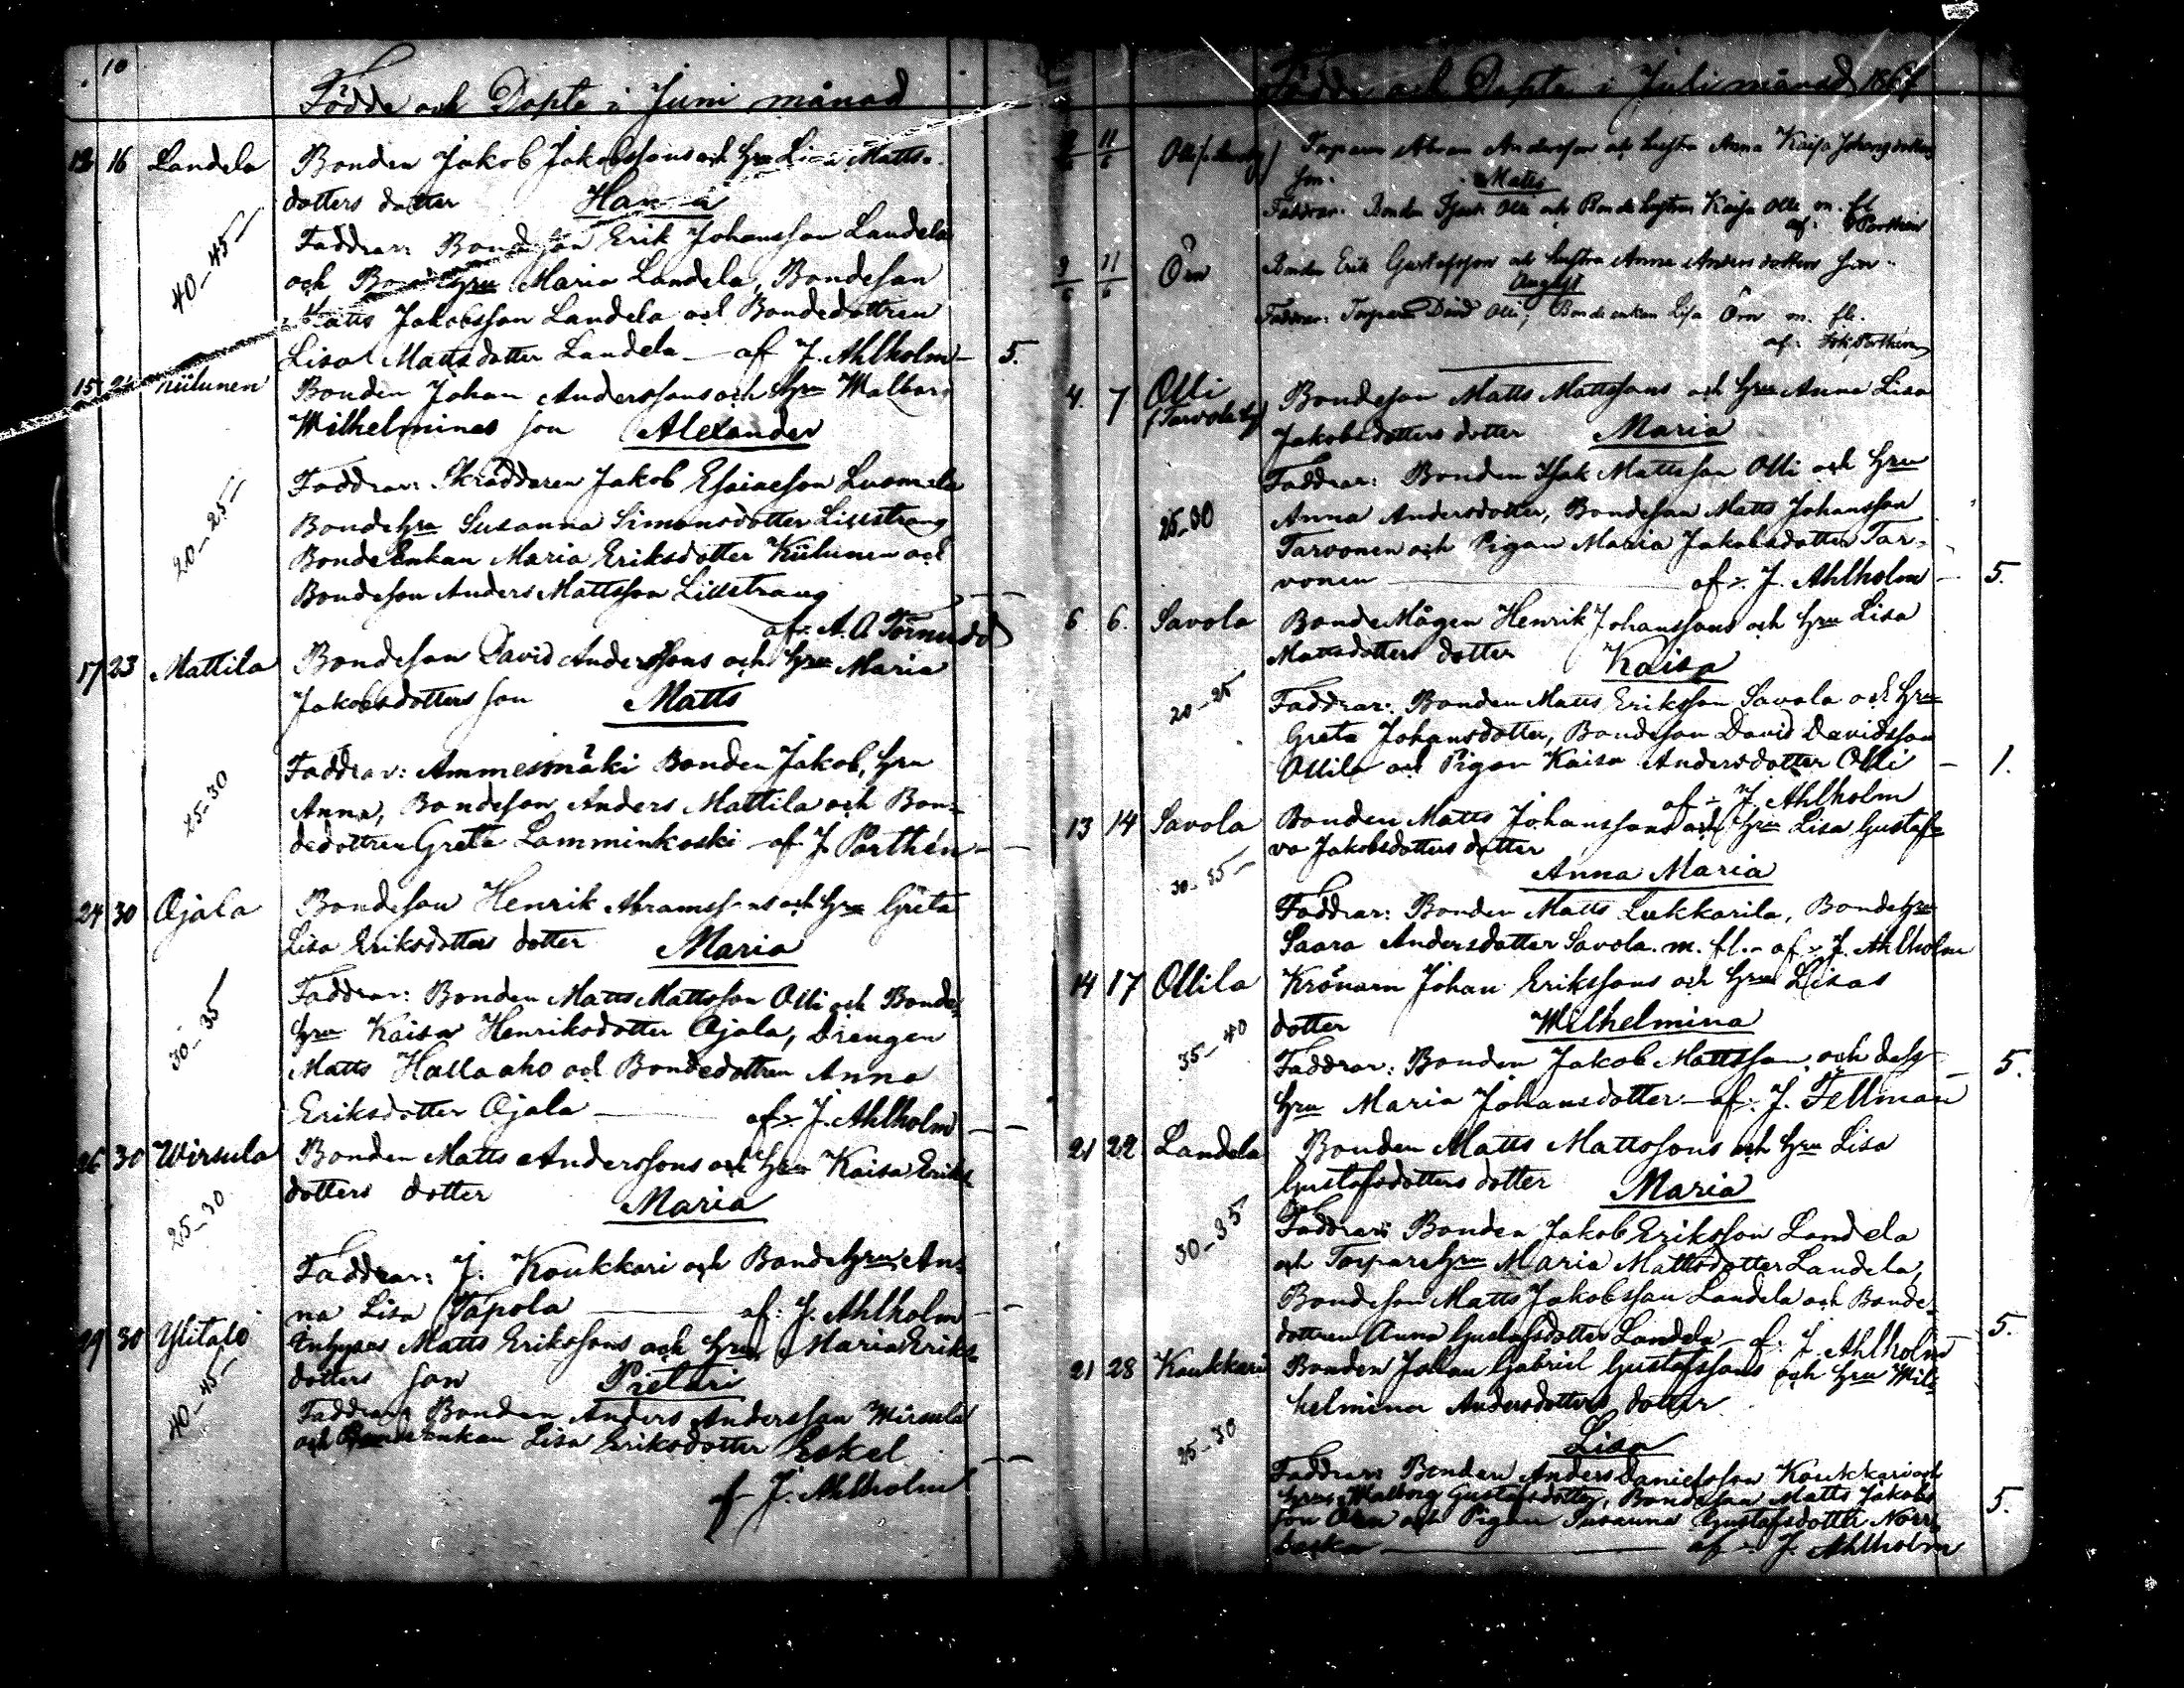 10
Födde och Döpte i Juni månad
13 16 Landela Bonden Jakob Jakobssons och Hru Matts-
dotters dotter
Faddrar: Erik Johansson Landela
och Hru Maria Landela, Bondeson
Matts Jakobsson Landela och Bondedottren
Lisa Mattsdotter Landela — af J. Ahlholm — 5.
40-45
15 Kiilunen Bonden Johan Anderssons och Hru Walborg
Wilhelminas son Alexander
Faddrar: Skräddaren Jakob Esaiasson Luomala
BondeHru Susanna Simonsdotter Lillstrang
Bondeenkan Maria Eriksdotter Kiilunen och
Bondeson Anders Mattsson Lillstrang
af: A. A Törnudd
20-25
17 23 Mattila Bondeson David Anderssons och Hru Maria
Jakobsdotters son Matts
Faddrar: Ammesmäki Bonden Jakob, Hru
Anna, Bondeson Anders Mattila och Bon-
dedottren Greta Lamminkoski — af J. Parthén —
25-30
24 30 Ojala Bondeson Henrik Abramssons och Hru Greta
Lisa Eriksdotters dotter Maria
Faddrar: Bonden Matts Mattsson Olli och Bonde-
Hru Kaisa Henriksdotter Ojala, Drengen
Matts Hallaaho och Bondedottren Anna
Eriksdotter Ojala — af: J. Ahlholm —
30-35
26 30 Wirsula Bonden Matts Anderssons och Hru Kaisa Eriks-
dotters dotter Maria
Faddrar: J. Koukkari och BondeHru An-
na Lisa Tapola — af: J. Ahlholm —
25-30
29 30 Ylitalo Inhyses Matts Erikssons och Hru Maria Eriks-
dotters son Pietari
Faddrar: Bonden Anders Andersson Wirsula
och Bondeenkan Lisa Eriksdotter Eskel
af J. Ahlholm
40-45
Födde och Döpte i Juli månad 1867
9/6 11/6 Torparen Abram Andersson och hustru Anna Kaisa Johansdotters
son. Matts
Faddrar: Bonden Isak Olli och Bondehustrun Kaisa Olli m. fl.
af: Parthén
9/6 11/6 Örn Bonden Erik Gustafsson och hustru Anna Andersdotters son
August
Faddrar: Torparen David Olli, Bondeenkan Lisa Örn m. fl.
af: Joh. Parthén
4. 7 Olli Bondeson Matts Mattssons och Hru Anna Lisa
(Tarvola by) Jakobsdotters dotter Maria
Faddrar: Bonden Isak Mattsson Olli och Hru
Anna Andersdotter, Bondeson Matts Johansson
Tarvonen och Pigan Maria Jakobsdotter Tar-
vonen — af: J. Ahlholm — 5.
25-30
6 6. Savola BondeMågen Henrik Johanssons och Hru Lisa
Mattsdotters dotter Kaisa
Faddrar: Bonden Matts Eriksson Savola och Hru
Greta Johansdotter, Bondeson David Davidsson
Ollila och Pigan Kaisa Andersdotter Olli — 1.
af: J. Ahlholm
20-25
13 14 Savola Bonden Matts Johanssons och Hru Lisa Gustaf-
va Jakobsdotters dotter
Anna Maria
Faddrar: Bonden Matts Lukkarila, BondeHru
Saara Andersdotter Savola m. fl. - af: J. Ahlholm
30-35
14 17 Ollila Krönarn Johan Erikssons och Hru Lisas
dotter Wilhelmina
Faddrar: Bonden Jakob Mattsson och dess — 5.
Hru Maria Johansdotter — af: J. Fellman
35-40
21 22 Landela Bonden Matts Mattssons och Hru Lisa
Gustafsdotters dotter Maria
Faddrar: Bonden Jakob Eriksson Landela
och TorpareHru Maria Mattsdotter Landela,
Bondeson Matts Jakobsson Landela och Bonde-
dottren Anna Gustafsdotter Landela — af: J. Ahlholm — 5.
30-35
21 28 Koukkari Bonden Johan Gabriel Gustafssons och Hru Wil-
helmina Andersdotters dotter
Lisa
Faddrar: Bonden Anders Danielsson Koukkari och
Hru Walborg Gustafsdotter, Bondeson Matts Jakobs-
son och Pigan Susanna Gustafsdotter Norr-
backa — af: J. Ahlholm 5.
25-30